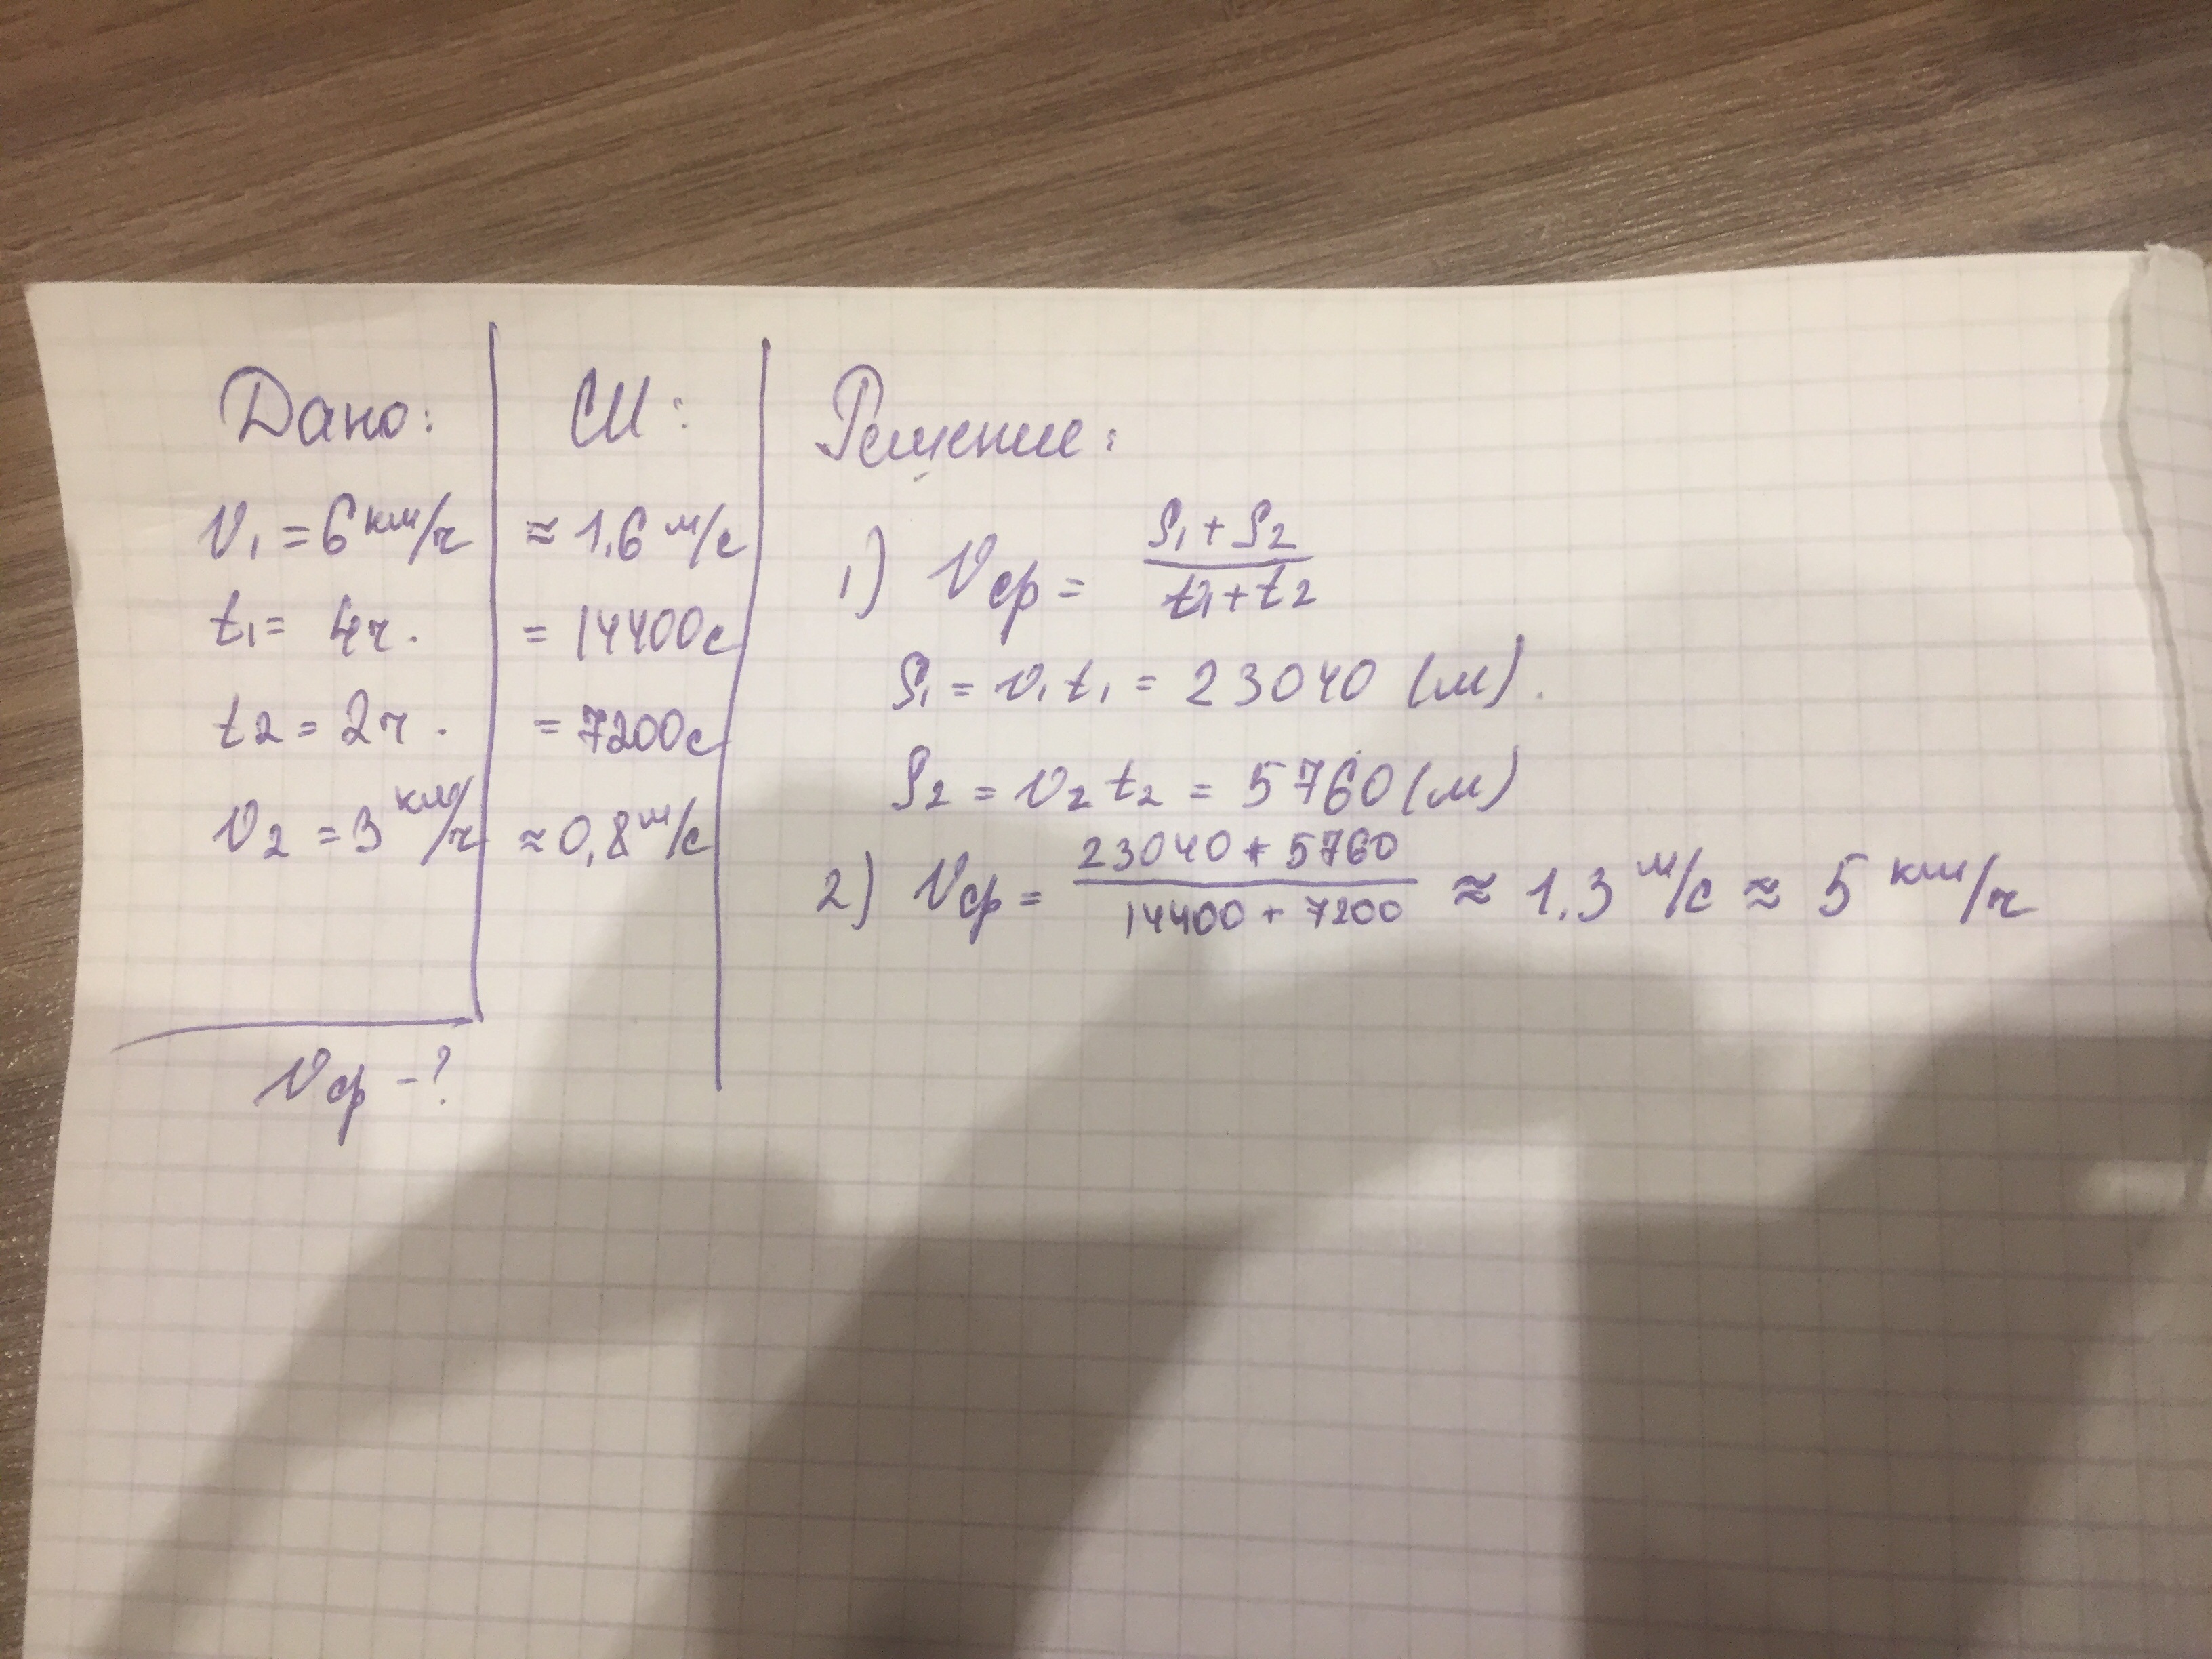 Дано:
v₁ = 6 км/ч
t₁ = 4ч.
t₂ = 2ч.
v₂ = 3 км/ч
vср - ?
СИ:
≈ 1,6 м/с
= 14400с
= 7200с
≈ 0,8 м/с
Решение:
1) vср = S₁ + S₂ / t₁ + t₂
S₁ = v₁ t₁ = 23040 (м).
S₂ = v₂ t₂ = 5760 (м)
2) vср = 23040 + 5760 / 14400 + 7200 ≈ 1,3 м/с ≈ 5 км/ч